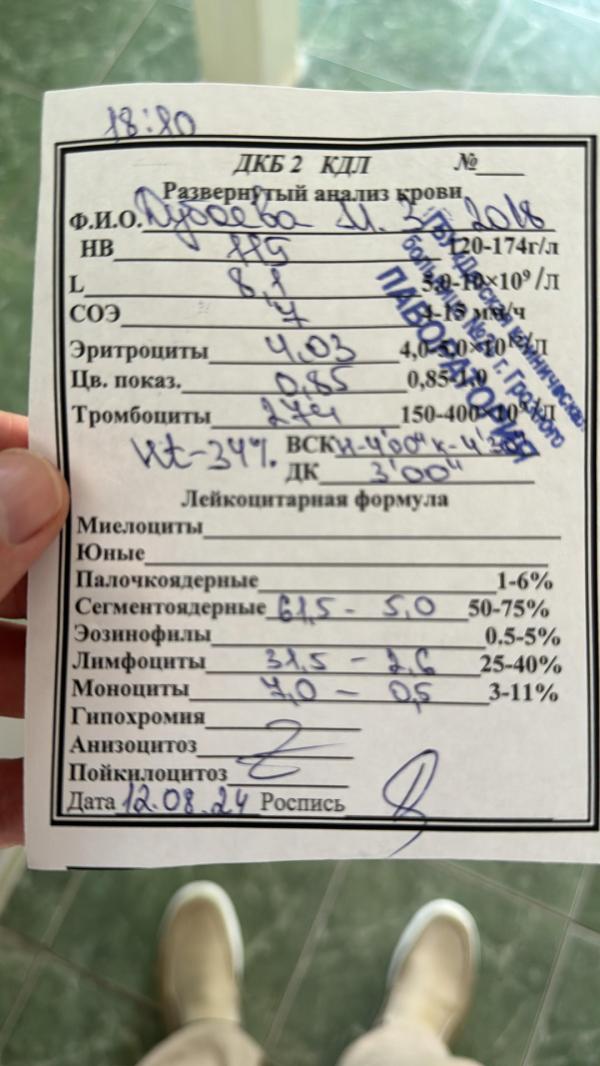 18:80
ДКБ 2 КДЛ №
Развернутый анализ крови
Ф.И.О. Дубаева М. З 2018
НВ 115 120-174г/л
L 8,1 5,0-10×10⁹/Л
СОЭ 7 4-15 мм/ч
Эритроциты 4,03 4,0-5,0×10¹²/Л
Цв. показ. 0,85 0,85-1,0
Тромбоциты 274 150-400×10⁹/Л
Ht-34% ВСК н-4'00" к-4'30"
ДК 3'00"
Лейкоцитарная формула
Миелоциты
Юные
Палочкоядерные 1-6%
Сегментоядерные 61,5 - 5,0 50-75%
Эозинофилы 0.5-5%
Лимфоциты 31,5 - 2,6 25-40%
Моноциты 7,0 - 0,5 3-11%
Гипохромия
Анизоцитоз
Пойкилоцитоз
Дата 12.08.24 Роспись
клиническая
больница №2 г. Грозного
ЛАБОРАТОРИЯ